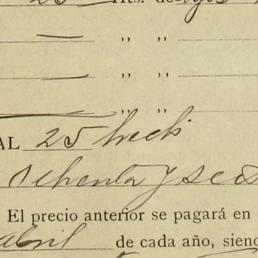 25 Hts. de
— „ „
— „ „
— „ „
AL 25 hect
Ochenta y seis
El precio anterior se pagará en
abril de cada año, sien